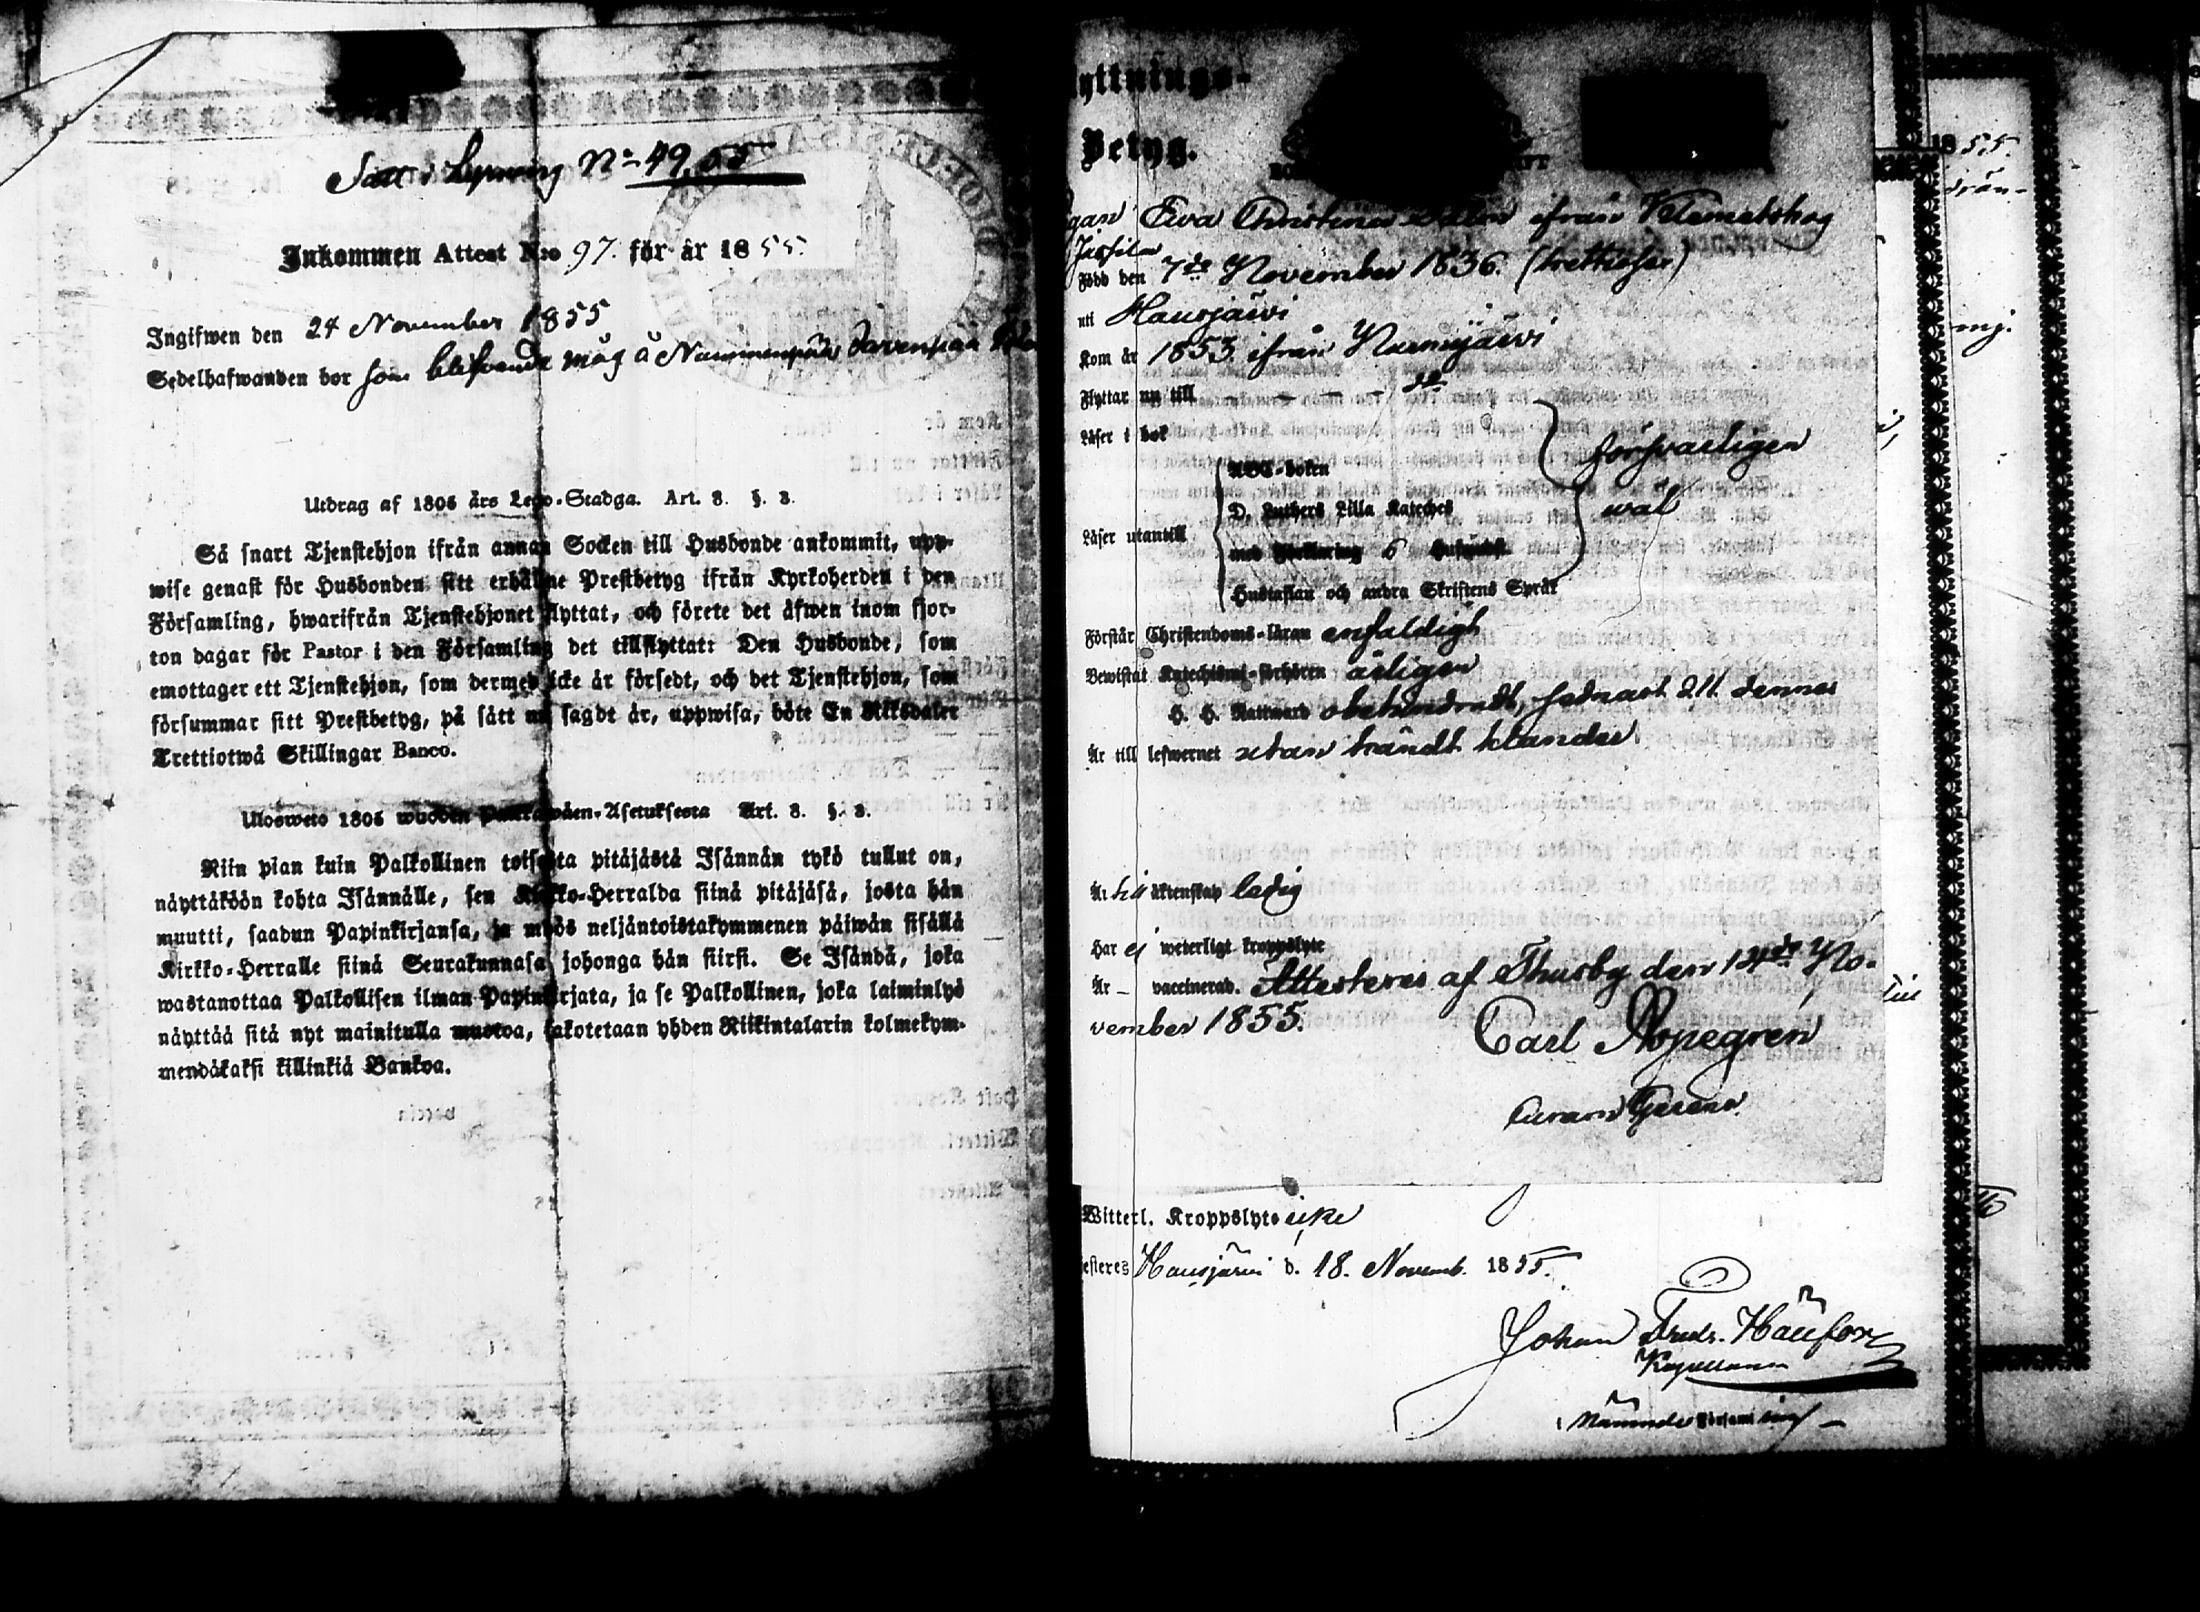 Satt i Lysning No 49, 55
Inkommen Attest N:o 97. för år 1855.
Ingifwen den 24 November 1855
Sedelhafwanden bor som blifvande måg å Nummenpää
Utdrag af 1805 års Lego-Stadga. Art. 8. §. 3.
Så snart Tjenstehjon ifrån annan Socken till Husbonde ankommit, upp-
wise genast för Husbonden sitt erhållne Prestbetyg ifrån Kyrkoherden i den
Församling, hwarifrån Tjenstehjonet flyttat, och förete det äfwen inom fjor-
ton dagar för Pastor i den Församling det tillflyttat: Den Husbonde, som
emottager ett Tjenstehjon, som dermed icke är försedt, och det Tjenstehjon, som
försummar sitt Prestbetyg, på sätt nu sagdt är, uppwisa, böte En Riksdaler
Trettiotwå Skillingar Banco.
Ulosweto 1805 wuoden Palkkawäen-Asetuksesta Art. 8. §. 3.
Niin pian kuin Palkollinen toisesta pitäjästä Isännän tykö tullut on,
näyttäköön kohta Isännälle, sen Kirkko-Herralda siinä pitäjäsä, josta hän
muutti, saadun Papinkirjansa, ja myös neljäntoistakymmenen päiwän sisällä
Kirkko-Herralle siinä Seurakunnasa johonga hän siirsi. Se Isändä, joka
wastanottaa Palkollisen ilman Papinkirjata, ja se Palkollinen, joka laiminlyö
näyttää sitä nyt mainitulla muotoa, sakotetaan yhden Riikintalarin kolmekym-
mendäkaksi killinkiä Bankoa.
yttnings-
Betyg.
Eva Christina ifrån Klemetskog
Född den 7de November 1836. (trettiosex)
uti Hausjärvi
Kom år 1853 ifrån Nurmijärvi
Flyttar nu till
Läser i bok försvarligen
Läser utantill
ABC-boken
D. Luthers Lilla Kateches
med Förklaring
Hustaflan och andra Skriftens Språk
wäl
Förstår Christendoms-läran enfaldigt
Bewistat Katechismi-förhören årligen
H. H. Nattward obehindradt, sednast d. 11 dennes
Är till lefwernet utan kändt klander
Är till äktenskap ledig
Har ej weterligt kroppslyte
Är – vaccinerad. Attesteras af Thusby den 12te No-
vember 1855.
Carl
Witterl. Kroppslyte icke
esteres Hausjärvi d. 18. Novemb. 1855.
Johan Fredr.
Kapellan